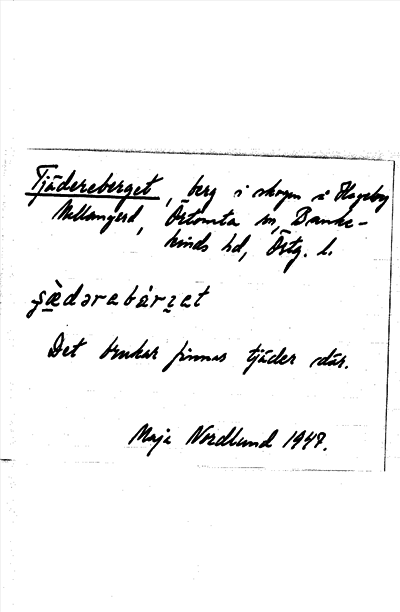 Tjädereberget, berg i skogen i Hageby
Mellangerd, Örtomta sn, Banke-
kinds hd, Östg. l.
ʂæ̀dərabárjet
Det brukar finnas tjäder där.
Maja Nordlund 1947.